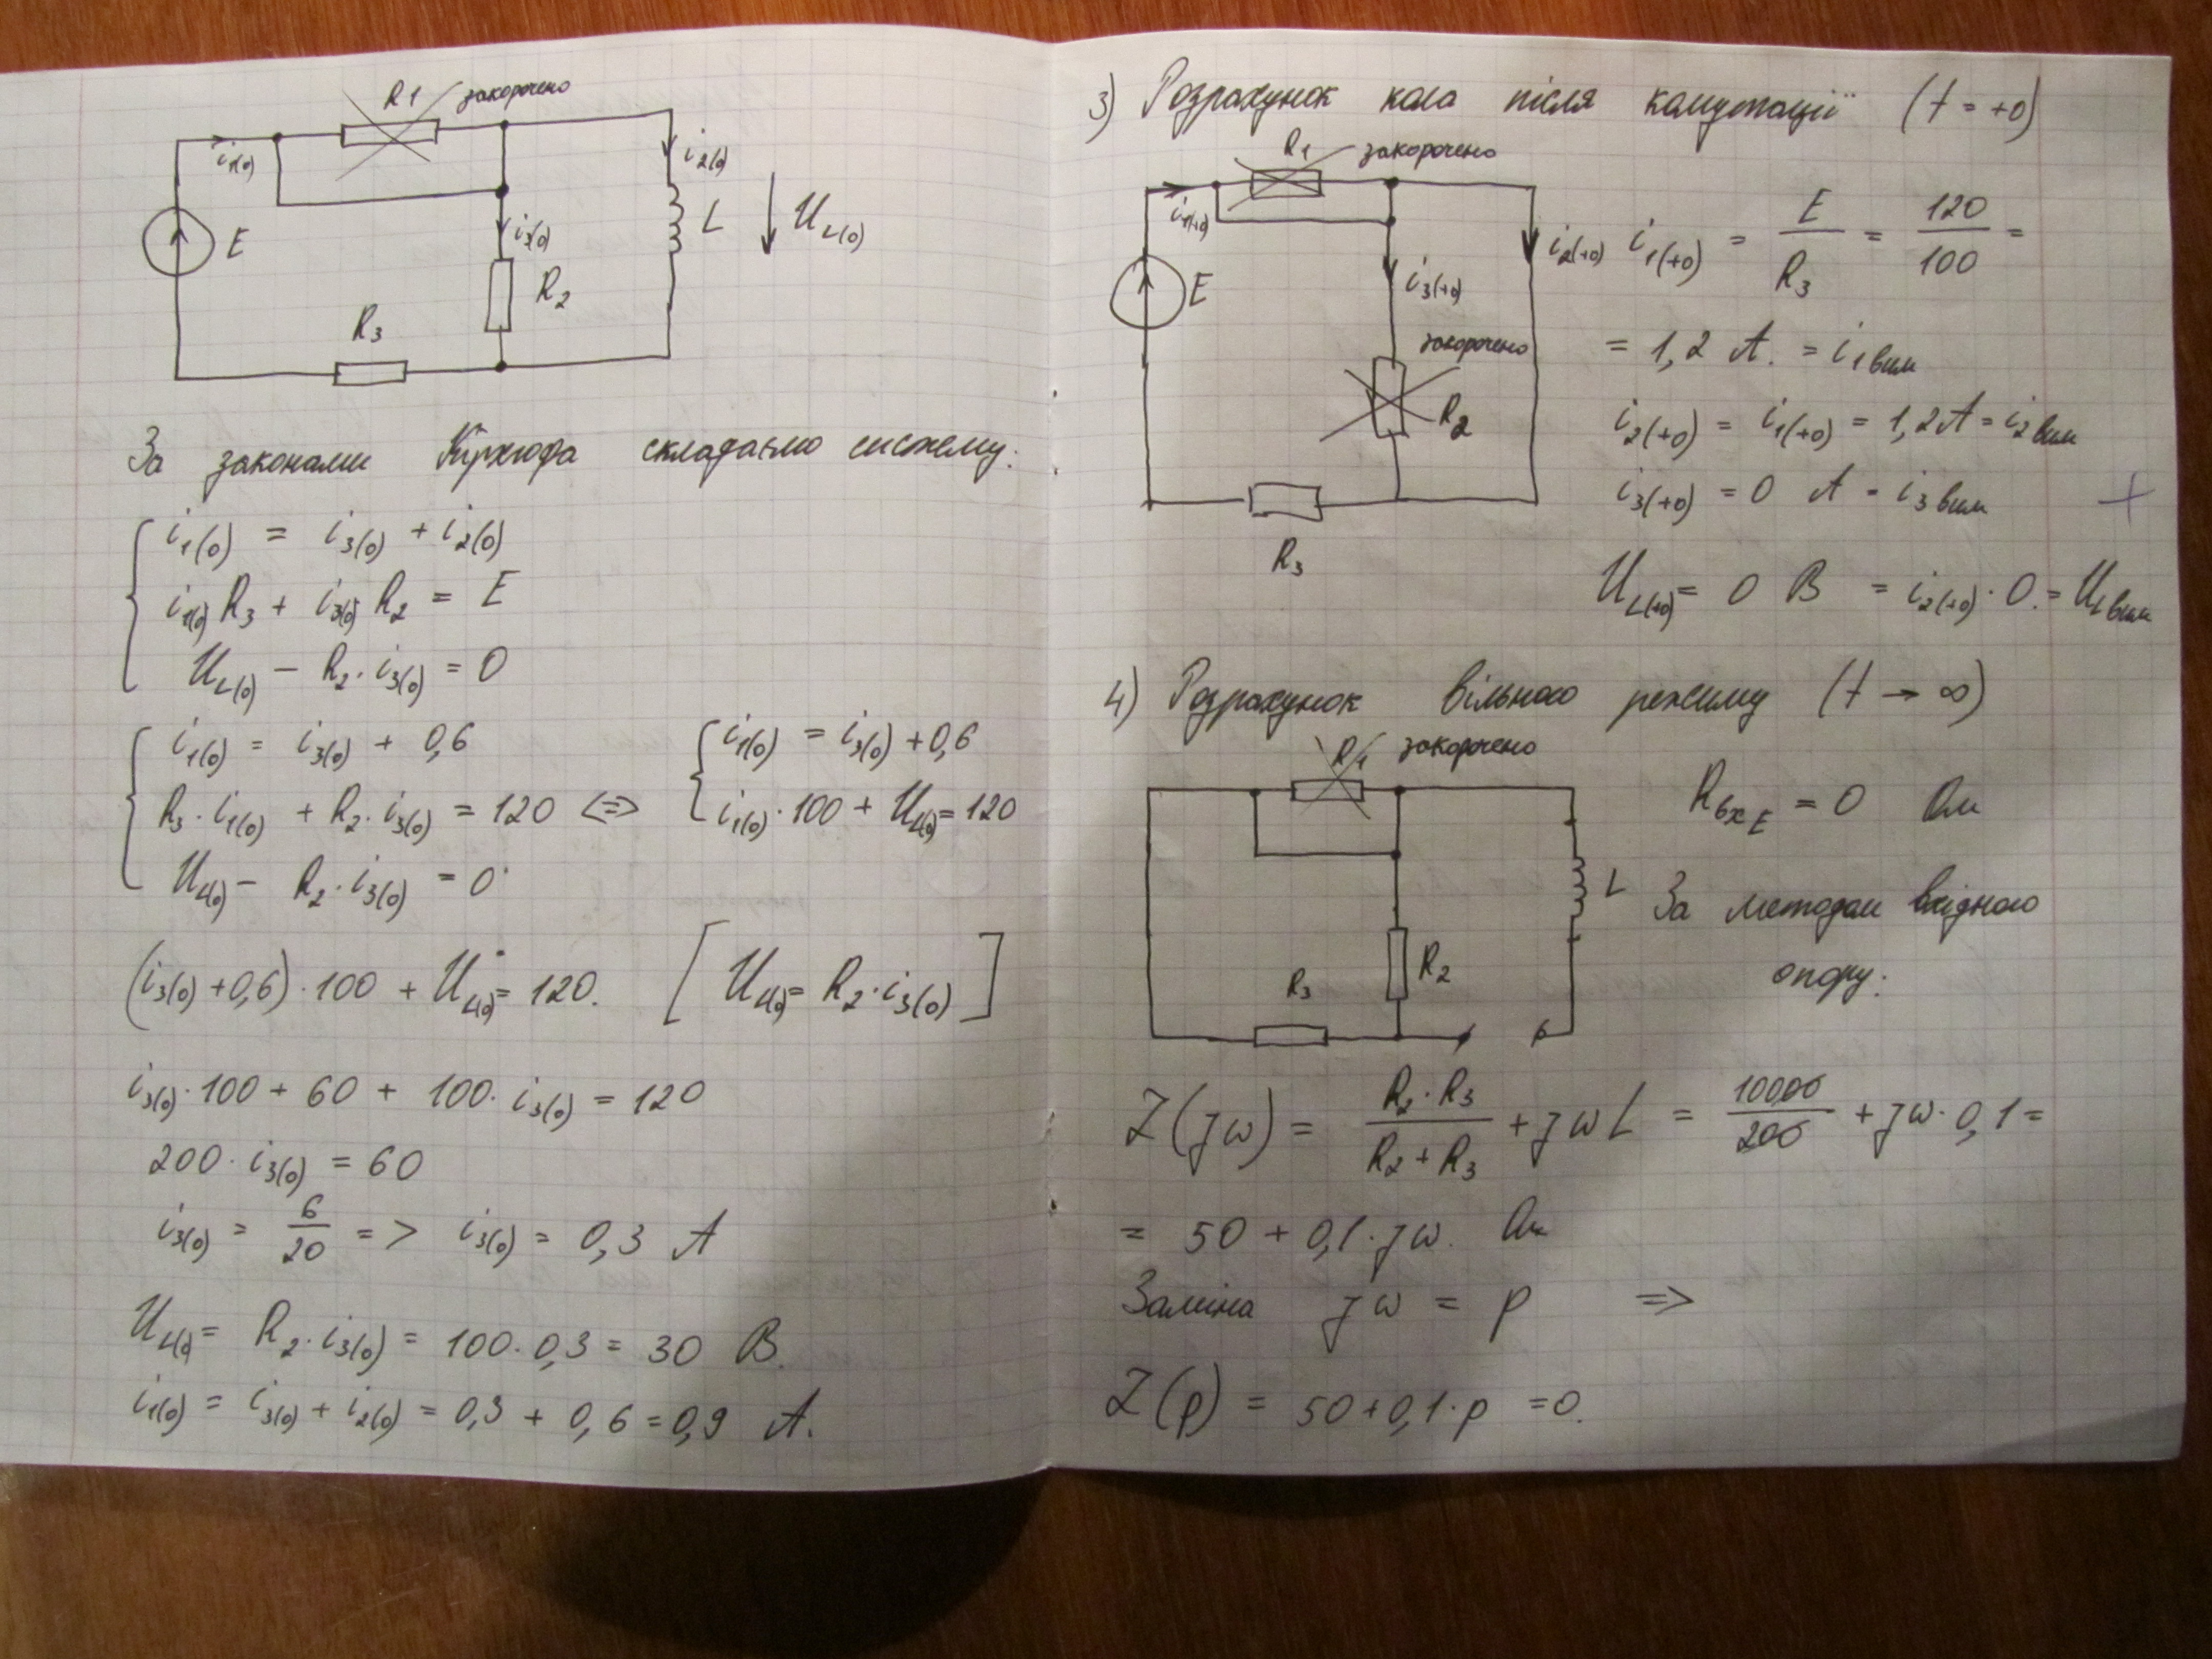 R1 закорочено
i1(0)
i2(0)
E
i3(0)
L
UL(0)
R2
R3
За законами Кірхгофа складаємо систему:
i1(0) = i3(0) + i2(0)
i1(0) R3 + i3(0) R2 = E
UL(0) − R2 · i3(0) = 0
i1(0) = i3(0) + 0,6
R3 · i1(0) + R2 · i3(0) = 120 <=>
UL(0) − R2 · i3(0) = 0
i1(0) = i3(0) + 0,6
i1(0) · 100 + UL(0) = 120
(i3(0) + 0,6) · 100 + UL(0) = 120. [ UL(0) = R2 · i3(0) ]
i3(0) · 100 + 60 + 100 · i3(0) = 120
200 · i3(0) = 60
i3(0) = 6/20 => i3(0) = 0,3 А
UL(0) = R2 · i3(0) = 100 · 0,3 = 30 В.
i1(0) = i3(0) + i2(0) = 0,3 + 0,6 = 0,9 А.
3) Розрахунок кола після комутації (t = +0)
R1 закорочено
i1(+0)
E
i2(+0)
i3(+0)
закорочено
R2
R3
i1(+0) = E/R3 = 120/100 =
= 1,2 А. = i1вим
i2(+0) = i1(+0) = 1,2 А = i2вим
i3(+0) = 0 А = i3вим
UL(+0) = 0 В = i2(+0) · 0. = ULвим
4) Розрахунок вільного режиму (t → ∞)
R1 закорочено
L
R2
R3
RвхE = 0 Ом
За методом вхідного
опору:
Z(jω) = R2 · R3/R2 + R3 + jωL = 10000/200 + jω · 0,1 =
= 50 + 0,1 · jω. Ом
Заміна jω = p =>
Z(p) = 50 + 0,1 · p = 0.